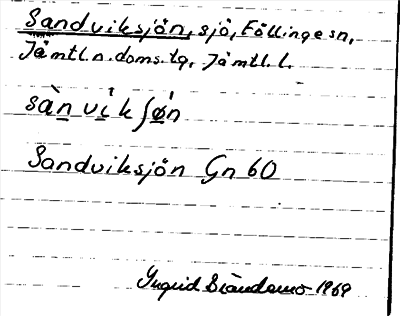 Sandviksjön, sjö, Föllinge sn,
Jämtl.n.doms.tg, Jämtl.l.
sàn vi̇k ʃøn
Sandviksjön Gn 60
Ingrid 1969